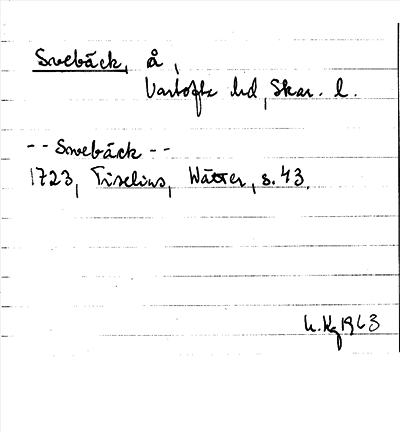 Svebäck, å,
Vartofta hd, Skar. l.
- - Svebäck - -
1723, Tiselius, Wätter, s. 43.
1963